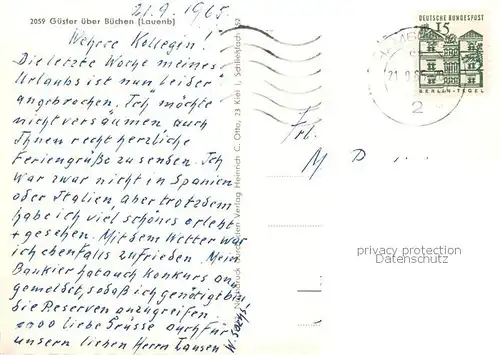 21.9.1965
2059 Güster über Büchen (Lauenb)
Wehrte Kollegin!
Die letzte Woche meines
Urlaubs ist nun leider
angebrochen. Ich möchte
nicht versäumen auch
Ihnen recht herzliche
Feriengrüße zu senden. Ich
war zwar nicht in Spanien
oder Italien aber trotzdem
habe ich viel schönes erlebt
+ gesehen. Mit dem Wetter war
ich ebenfalls zufrieden. Mein
Bankier hat auch Konkurs an-
gemeldet, sodaß ich genötigt bin
die Reserven anzugreifen.
1000 liebe Grüsse auch für
unsern lieben Herrn Clausen
W. Sachs!
Verlag Heinrich C. Otto, 23 Kiel 1, Schließfach 162
DEUTSCHE BUNDESPOST
15
BERLIN-TEGEL
21.9.6
2
Frl.
M D...
privacy protection
Datenschutz